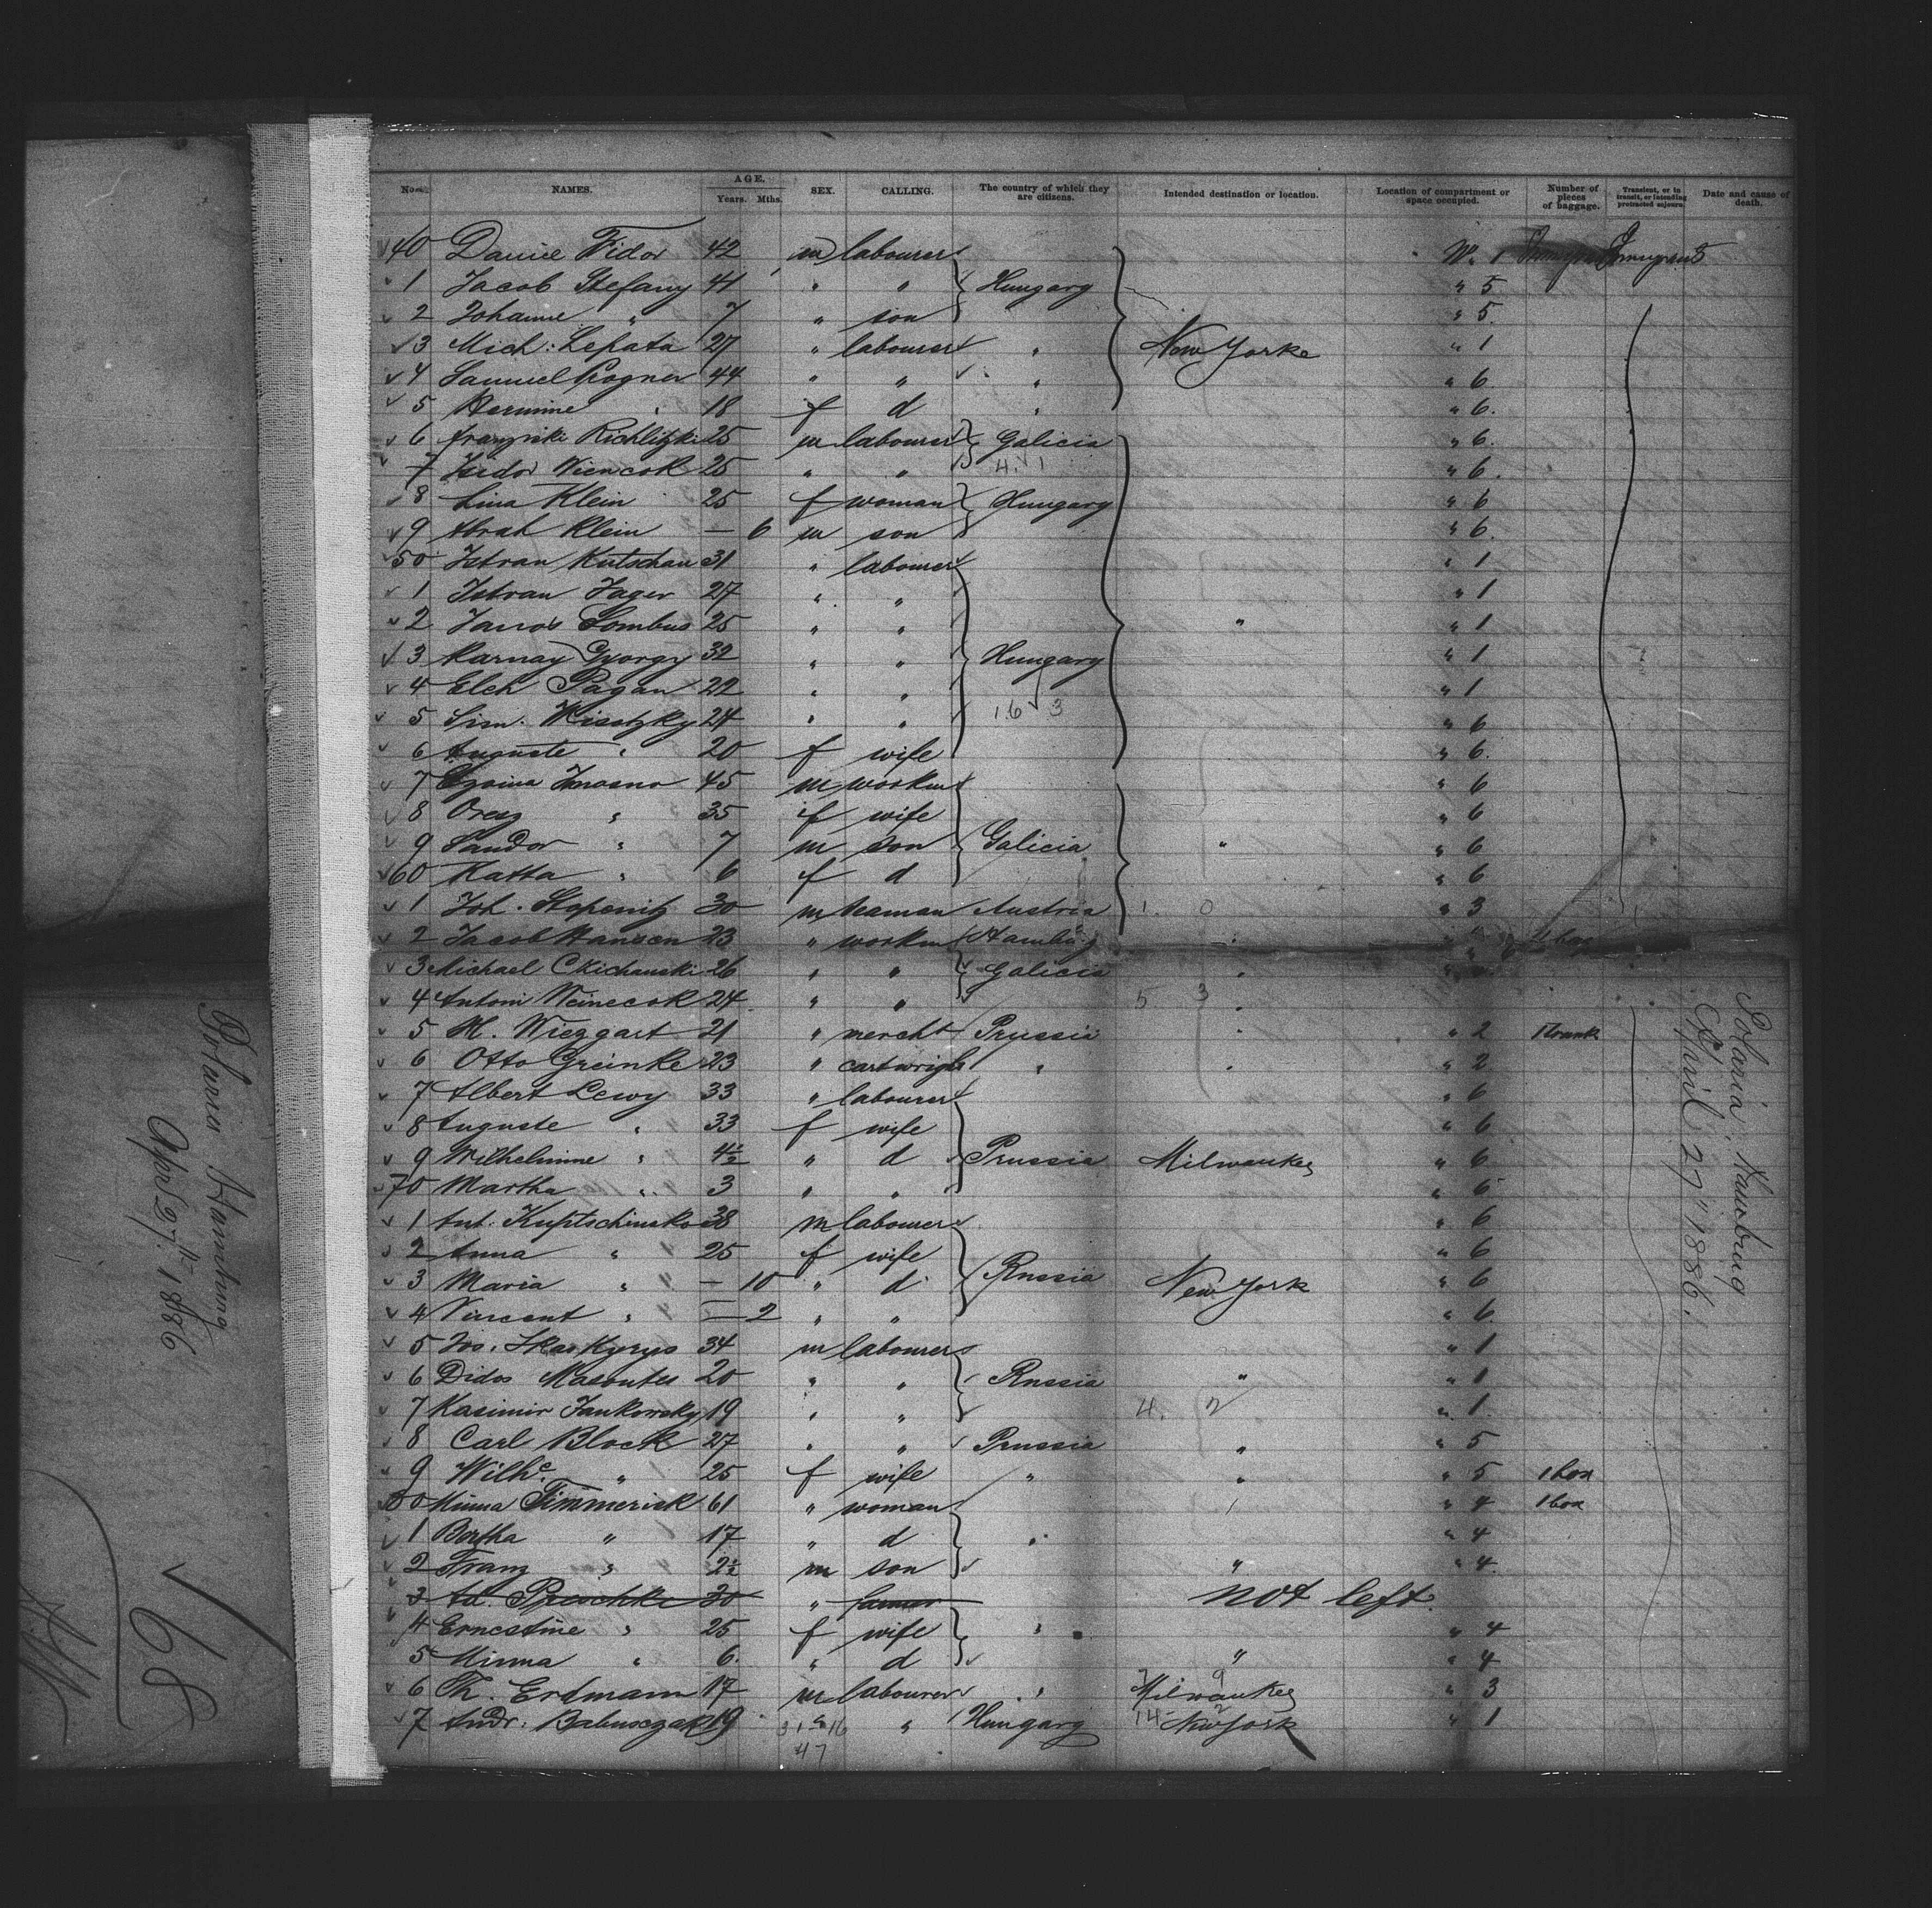 Polaria Hamburg
Apl 27th 1886
168
Polaria. Hamburg
April 27" 1886.
Nos. NAMES. AGE. Years. Mths. SEX. CALLING. The country of which they are citizens. Intended destination or location. Location of compartment or space occupied. Number of pieces of baggage. Transient, or in transit, or intending protracted sojourn. Date and cause of death.
40 Daniel Fidor 42 m labourer No. 1
1 Jacob Stefany 41 " " Hungary " 5
2 Johanne " 7 " son " 5.
3 Mich: Lepata 27 " labourer " New Yorke " 1
4 Samuel 44 " " " " 6
5 Hermine " 18 f d " " 6.
6 Richlitzki 25 m labourer Galicia " 6.
7 Isidor Wiencok 25 " " 4. 1 " 6.
8 Lina Klein 25 f woman Hungary " 6
9 Abrah Klein — 6 m son " 6.
50 Istvan Kutschau 31 " labourer " 1
1 Istvan Jager 27 " " " 1
2 Janos Lombus 25 " " " " 1
3 Karnay Gyorgy 32 " " Hungary " 1
4 Elek Pagan 22 " " " 1
5 Sim. 24 " " 16 3 " 6
6 Auguste " 20 f wife " 6.
7 45 m workm " 6
8 " 35 f wife " 6
9 Sandor " 7 m son Galicia " " 6
60 Katta " 6 f d " 6
1 Joh. 30 m seaman Austria 1. 0 " 3
2 Jacob Hansen 23 " workm Hamburg " 1 box
3 Michael 26 " " Galicia "
4 Antoni Weinecok 24 " " 5 3 "
5 H. Wiezgart 21 " mercht Prussia " " 2 1 trunk
6 Otto Greinke 23 " cartwright " " " 2
7 Albert Lewy 33 " labourer " 6
8 Auguste " 33 f wife " 6
9 Wilhelmine " 4½ " d Prussia Milwaukee " 6
70 Martha " 3 " " " 6
1 Ant. 38 m labourer " 6
2 Anna " 25 f wife " 6
3 Maria " — 10 " d Russia New York " 6
4 Vincent " — 2 " " " 6.
5 Jos. 34 m labourer " 1
6 Didos 20 " " Russia " " 1
7 Kasimir Jankowsky 19 " " 4. 2 " 1.
8 Carl Block 27 " " Prussia " " 5
9 Wilhe. " 25 f wife " " " 5 1 box
80 Minna Timmerick 61 " woman " 4 1 box
1 Bertha " 17 " d " " 4
2 Franz " 2½ m son " " 4.
3 Ad. Preschke 30 " farmer not left.
4 Ernestine " 25 f wife " " 4
5 Minna " 6. " d " " 4
6 Th. Erdmann 17 m labourer " Milwaukee " 3
7 Andr. 19 " Hungary New York " 1
31 16
47